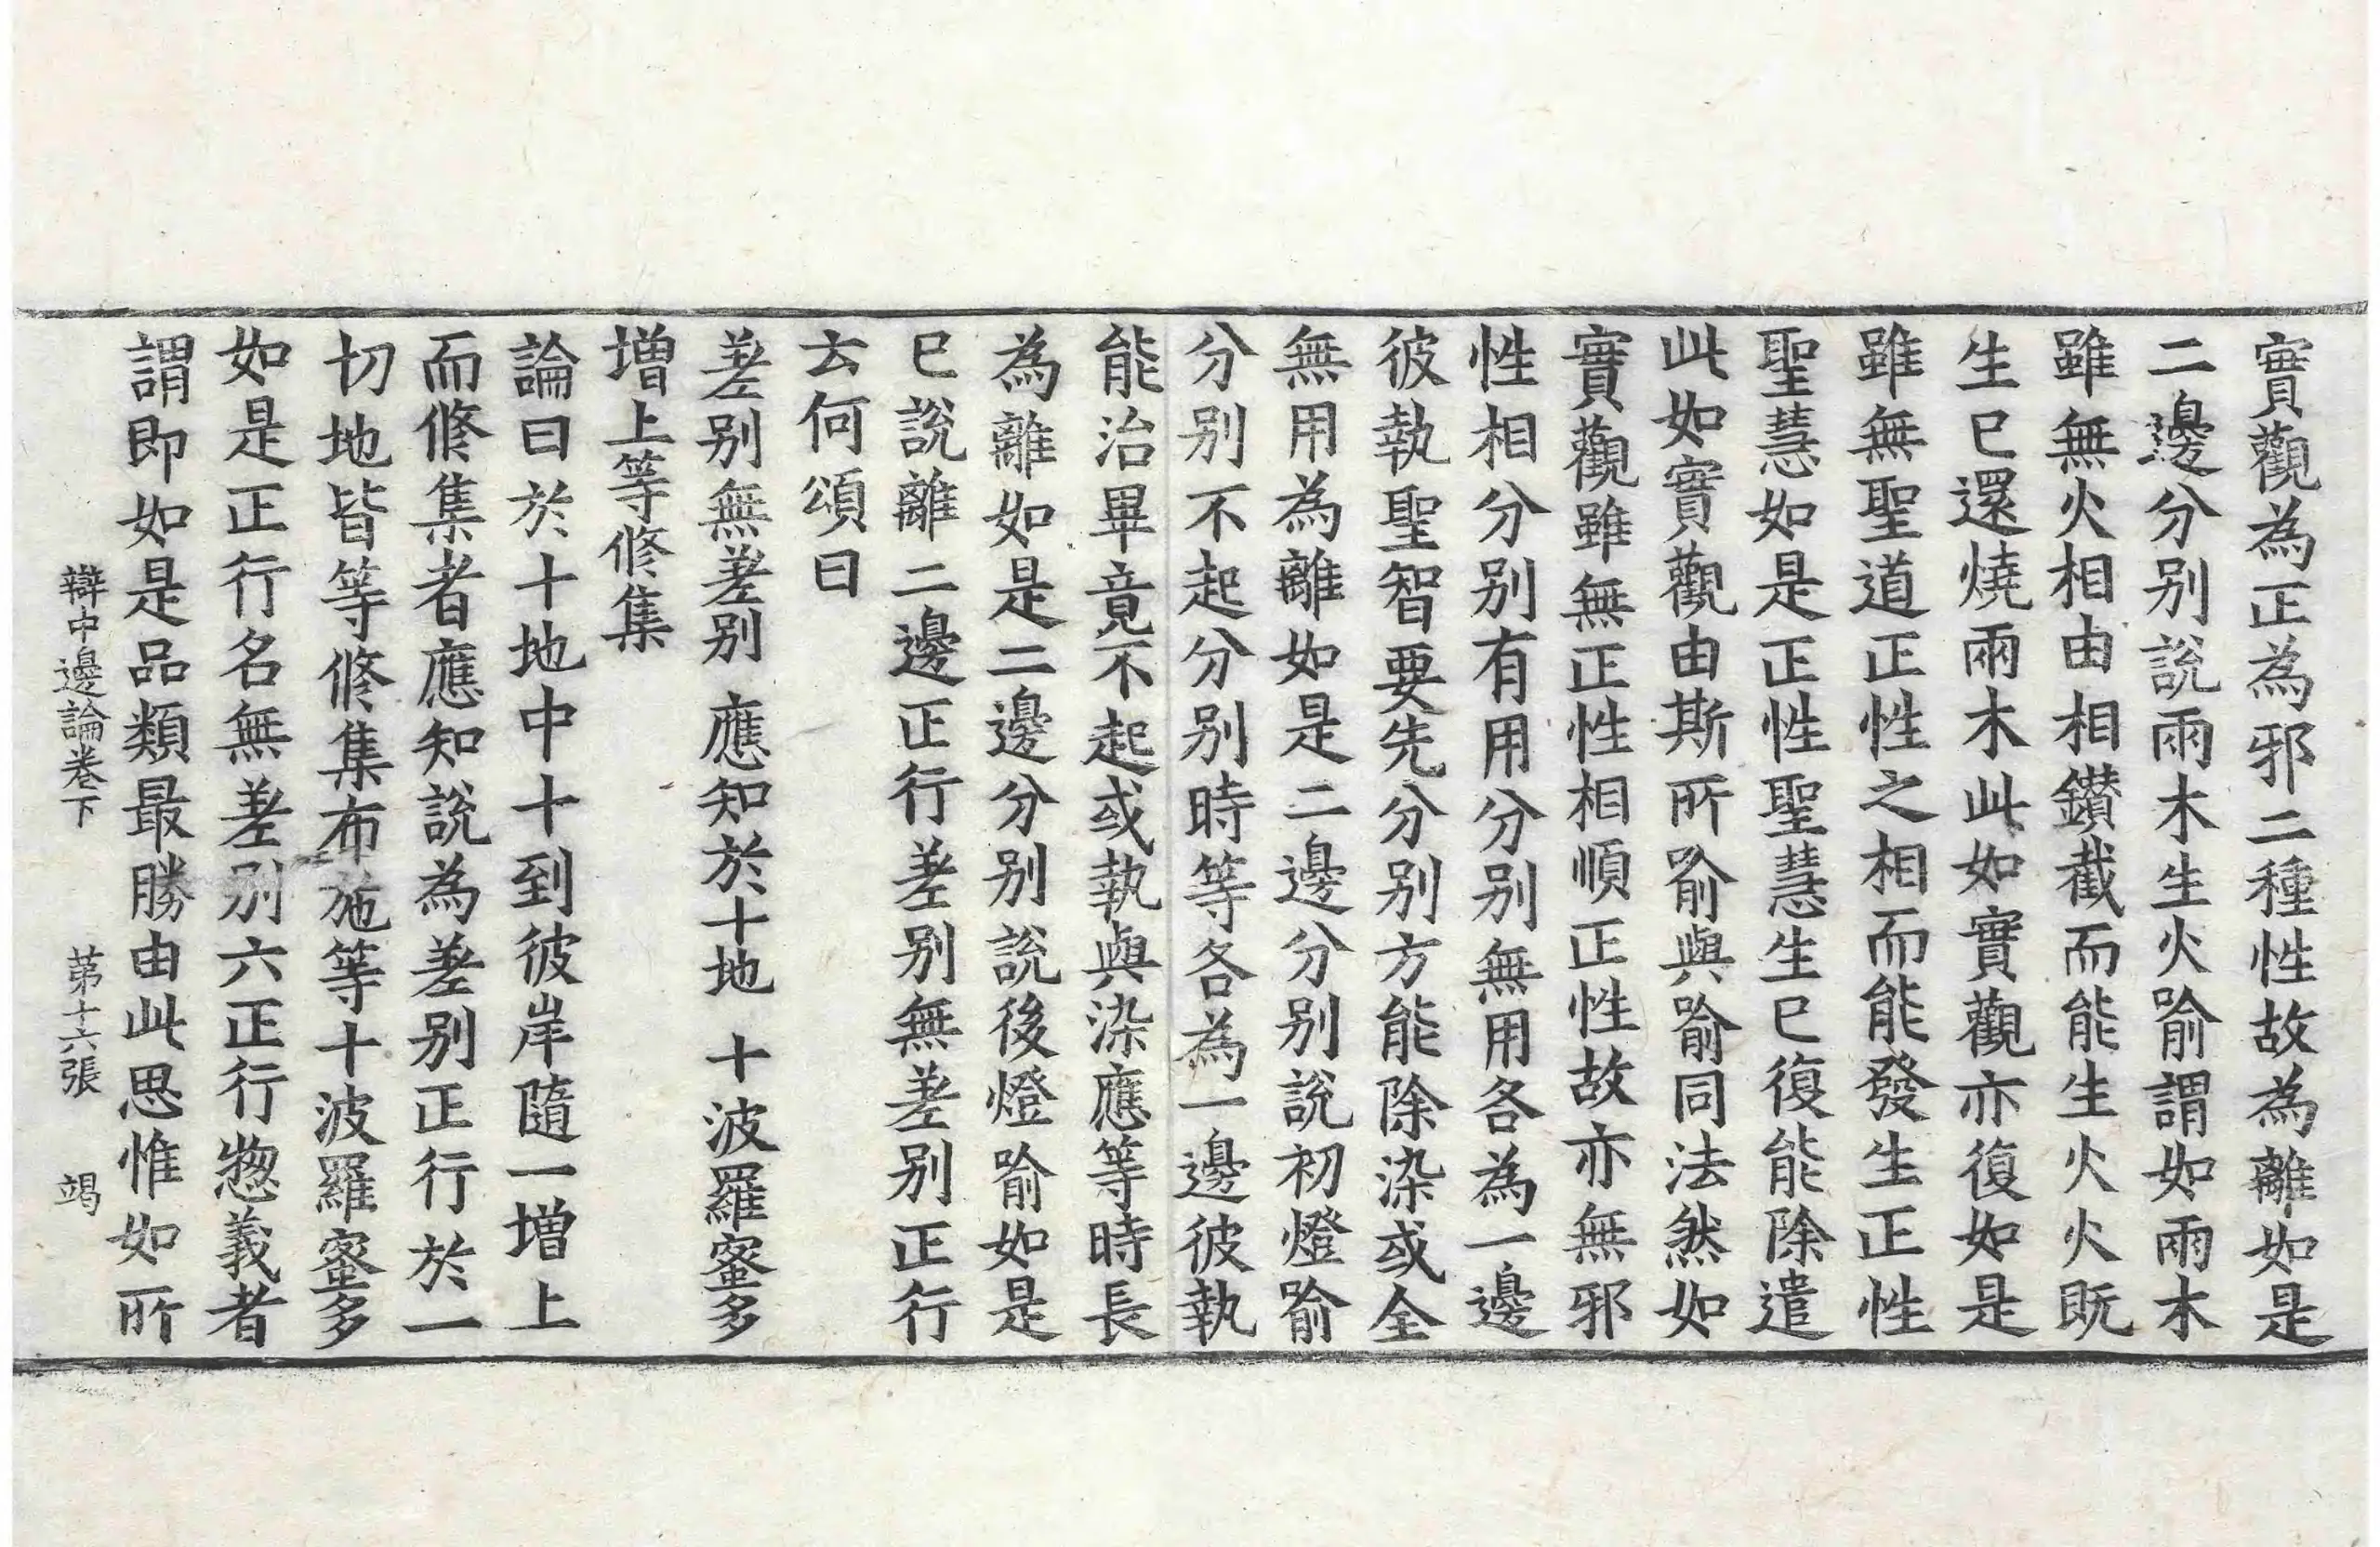 實觀為正為邪二種性故為離如是
二邊分别說兩木生火喻謂如兩木
雖無火相由相鑚截而能生火火既
生已還燒兩木此如實觀亦復如是
雖無聖道正性之相而能發生正性
聖慧如是正性聖慧生已復能除遣
此如實觀由斯所喻與喻同法然如
實觀雖無正性相順正性故亦無邪
性相分别有用分别無用各為一邊
彼執聖智要先分别方能除染或全
無用為離如是二邊分别說初燈喻
分别不起分别時等各為一邊彼執
能治畢竟不起或執與染應等時長
為離如是二邊分别說後燈喻如是
已說離二邊正行差别無差别正行
云何頌曰
差别無差别 應知於十地 十波羅蜜多
增上等修集
論曰於十地中十到彼岸隨一增上
而修集者應知說為差别正行於一
切地皆等修集布施等十波羅蜜多
如是正行名無差别六正行惣義者
謂即如是品類最勝由此思惟如所
辯中邊論卷下 第十六張 竭